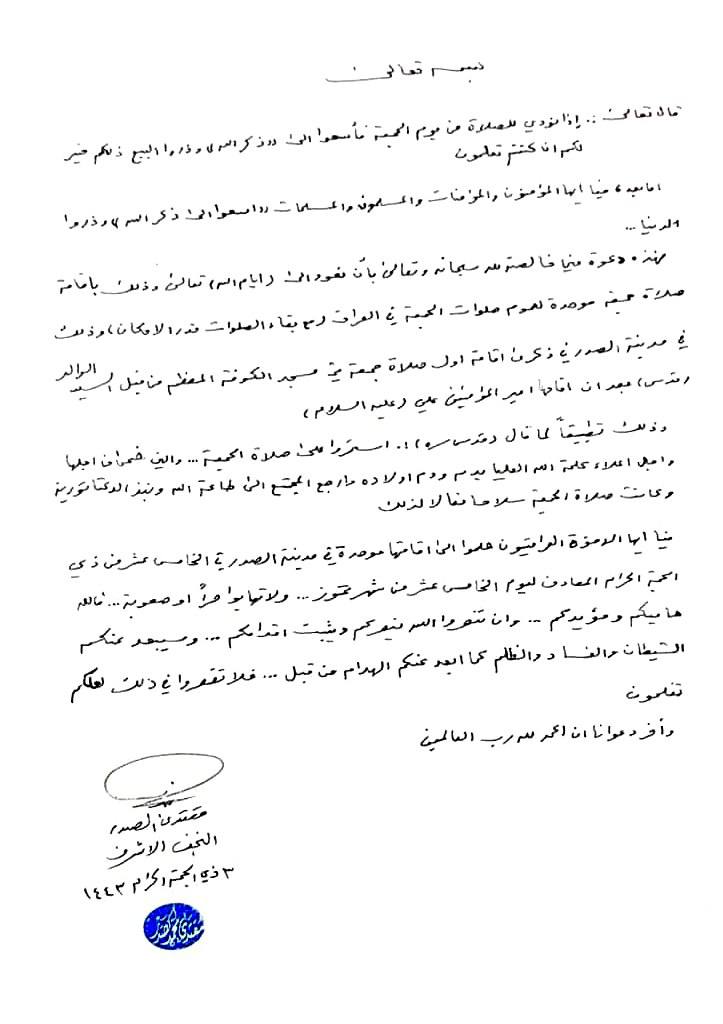 بسمه تعالى
قال تعالى: إذا نودي للصلاة من يوم الجمعة فأسعوا الى ((ذكر الله)) وذروا البيع ذلكم خير
لكم ان كنتم تعلمون
اما بعد، فيا ايها المؤمنون والمؤمنات والمسلمون والمسلمات ((اسعوا الى ذكر الله)) وذروا
الدنيا...
فهذه دعوة مني خالصة لله سبحانه وتعالى بأن نعود الى (ايام الله) تعالى وذلك باقامة
صلاة جمعة موحدة لعموم صلوات الجمعة في العراق (مع بقاء الصلوات قدر الامكان) وذلك
في مدينة الصدر في ذكرى اقامة اول صلاة جمعة في مسجد الكوفة المعظم من قبل السيد الوالد
(قدس) بعد ان اقامها امير المؤمنين علي (عليه السلام)
وذلك تطبيقاً لما قال (قدس سره): استمروا على صلاة الجمعة... والذي ضحى من اجلها
واجل اعلاء كلمة الله العليا بدمه ودم اولاده وارجع المجتمع الى طاعة الله ونبذ الدكتاتورية
وكانت صلاة الجمعة سلاحا فعالا لذلك
فيا ايها الاخوة العراقيون هلموا الى اقامتها موحدة في مدينة الصدر في الخامس عشر من ذي
الحجة الحرام المصادف ليوم الخامس عشر من شهر تموز... ولا تهابوا حراً او صعوبة... فالله
حاميكم ومؤيدكم... وان تنصروا الله ينصركم ويثبت اقدامكم... وسيبعد عنكم
الشيطان والفساد والظلم كما ابعد عنكم الهدام من قبل... فلا تقصروا في ذلك لعلكم
تفلحون
وأخر دعوانا ان الحمد لله رب العالمين
مقتدى الصدر
النجف الاشرف
٣ ذي الحجة الحرام ١٤٤٣